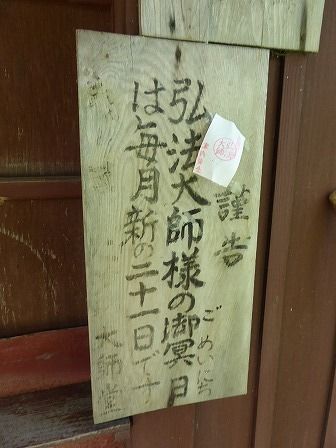 謹告
弘法大師様の御冥日
ごめいにち
は毎月新の二十一日です
大師堂